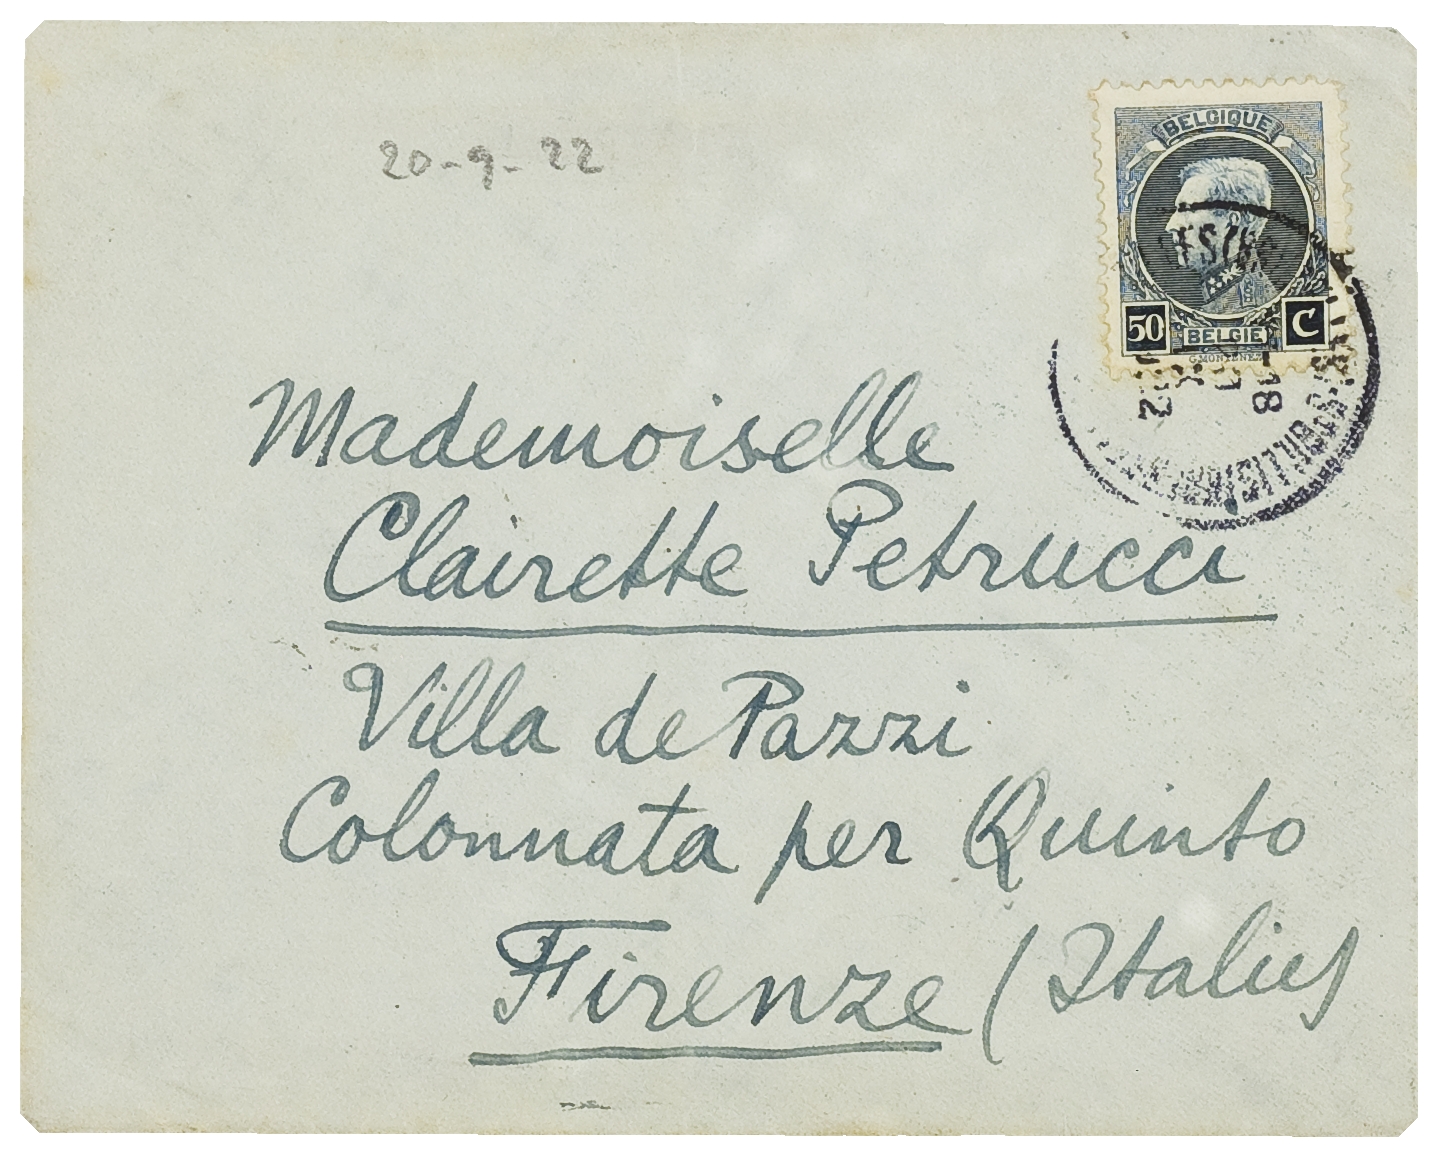 20-9-22
BELGIQUE
50 BELGIË C
G.MONTENEZ
18
Mademoiselle
Clairette Petrucci
Villa de Pazzi
Colonnata per Quinto
Firenze (Italie)